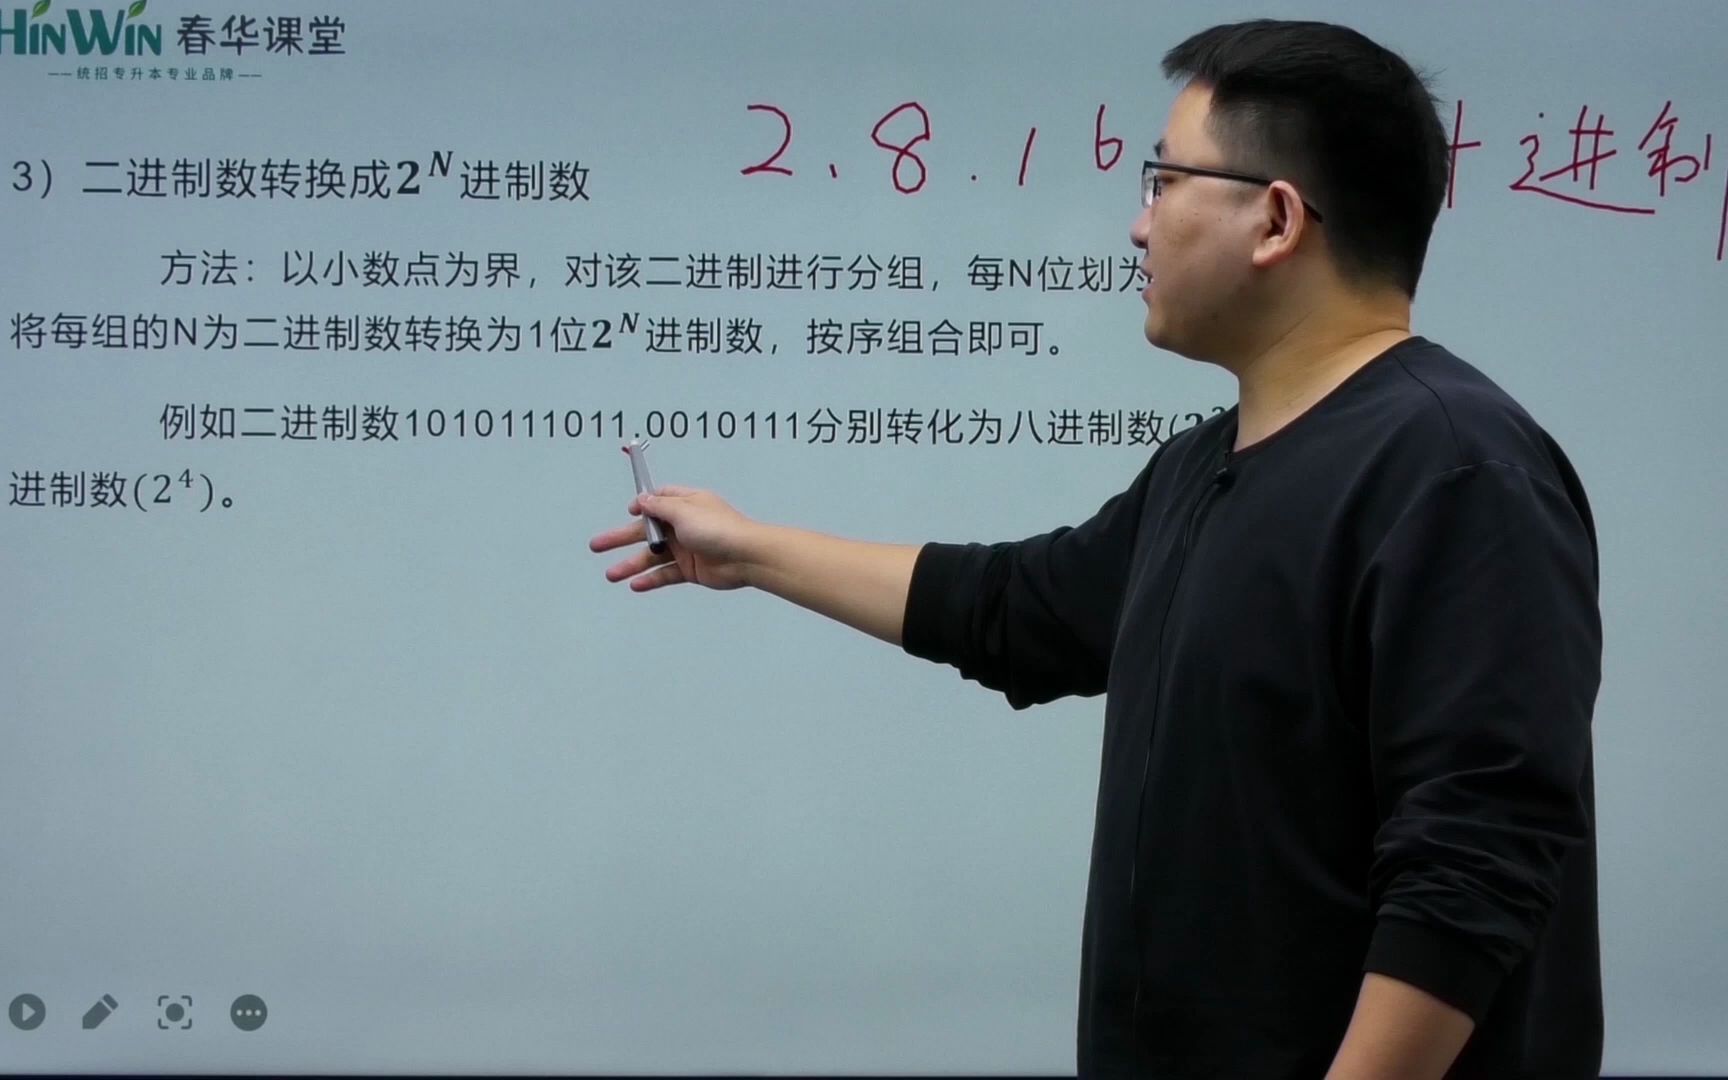 HINWIN 春华课堂
——统招专升本专业品牌——
2.8.16 十进制
3）二进制数转换成2^N进制数
方法：以小数点为界，对该二进制进行分组，每N位划为
将每组的N为二进制数转换为1位2^N进制数，按序组合即可。
例如二进制数1010111011.0010111分别转化为八进制数(2
进制数(2^4)。